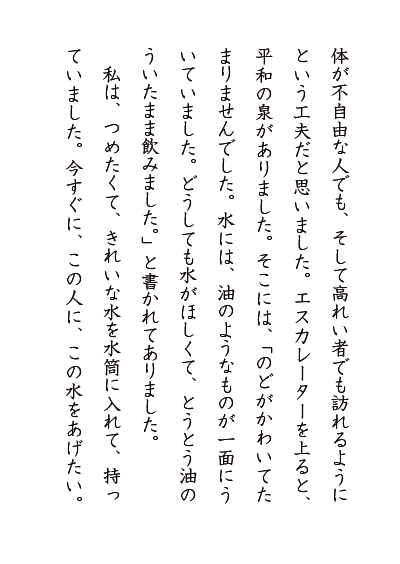 体が不自由な人でも、そして高れい者でも訪れるように
という工夫だと思いました。エスカレーターを上ると、
平和の泉がありました。そこには、「のどがかわいてた
まりませんでした。水には、油のようなものが一面にう
いていました。どうしても水がほしくて、とうとう油の
ういたまま飲みました。」と書かれてありました。
　私は、つめたくて、きれいな水を水筒に入れて、持っ
ていました。今すぐに、この人に、この水をあげたい。